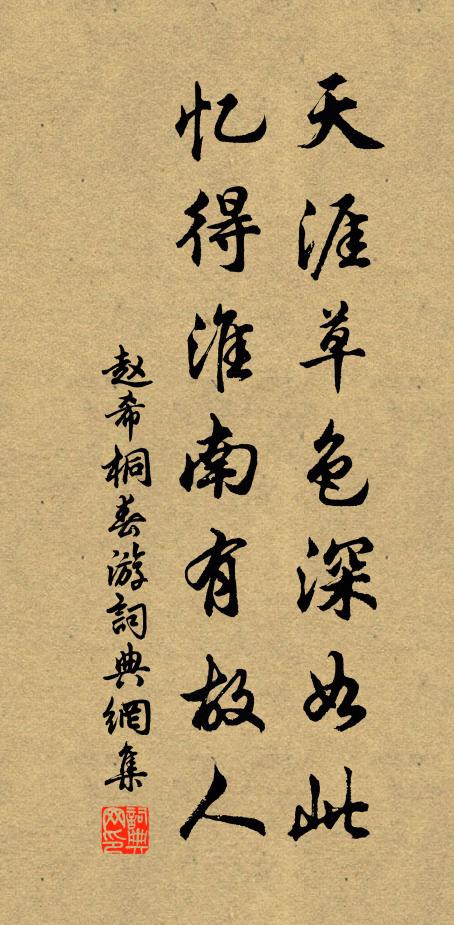 天涯草色深如此
忆得淮南有故人
赵希桐春游詞典網集
詞典网印